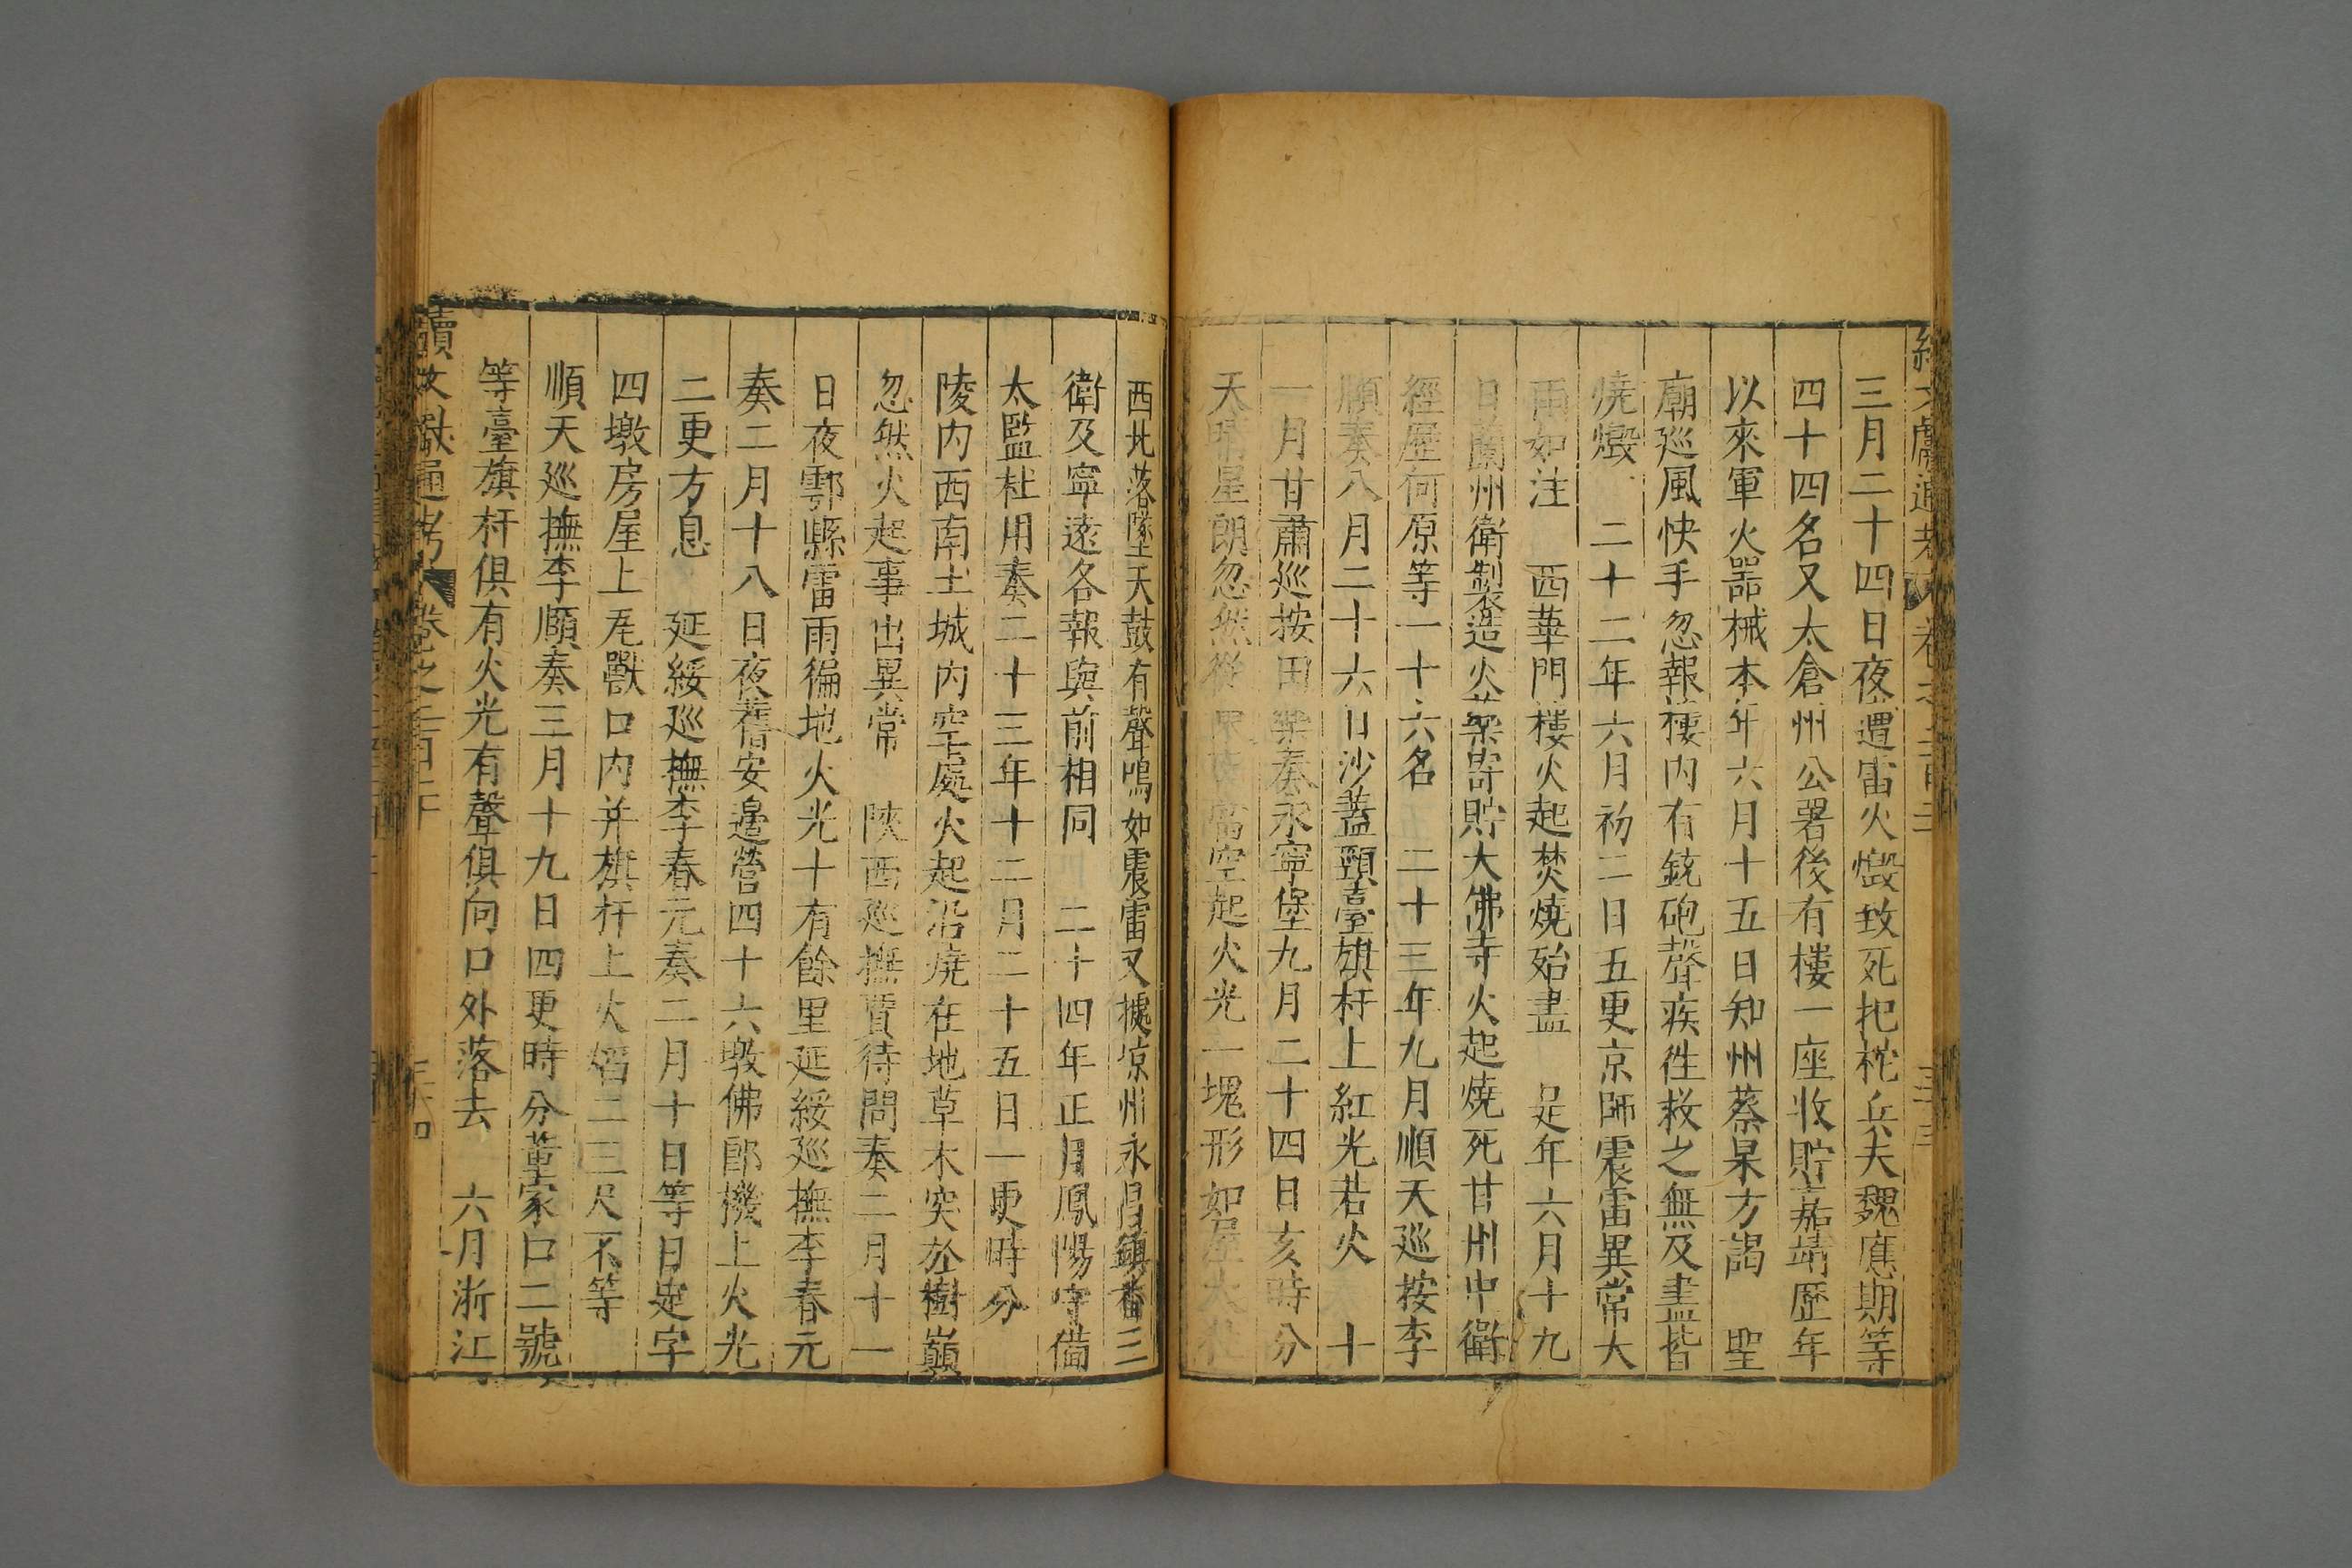 三月二十四日夜遭雷火燬致死把柁兵夫魏應期等
四十四名又太倉州公署後有樓一座收貯嘉靖歷年
以來軍火器械本年六月十五日知州蔡杲方謁 聖
廟廵風快手忽報樓内有銃砲聲疾徃救之無及盡皆
燒燬 二十二年六月初二日五更京師震雷異常大
雨如注 西華門樓火起焚燒殆盡 是年六月十九
日蘭州衛製造火藥寄貯大佛寺火起燒死甘州中衛
經歷何原等一十六名 二十三年九月順天廵按李
順奏八月二十六日沙蓋頸臺旗杆上紅光若火 十
一月甘肅廵按田 奏永寧堡九月二十四日亥時分
天晴星朗忽然從 當空起火光一塊形如屋大
西北落墜天鼓有聲鳴如震雷又據凉州永昌鎮番三
衛及寧遠各報與前相同 二十四年正月鳳陽守備
太監杜用奏二十三年十二月二十五日一更時分
陵内西南土城内空處火起沿燒在地草木突於樹巔
忽然火起事出異常 陜西廵撫賈待問奏二月十一
日夜鄠縣雷雨徧地火光十有餘里延綏廵撫李春元
奏二月十八日夜舊安邉營四十六墩佛郎機上火光
二更方息 延綏廵撫李春元奏二月十日等日定字
四墩房屋上𤓰獸口内并旗杆上火熖二三尺不等
順天廵撫李頤奏三月十九日四更時分董家口二號
等臺旗杆俱有火光有聲俱向口外落去 六月浙江
續文獻通考 卷之二百二十